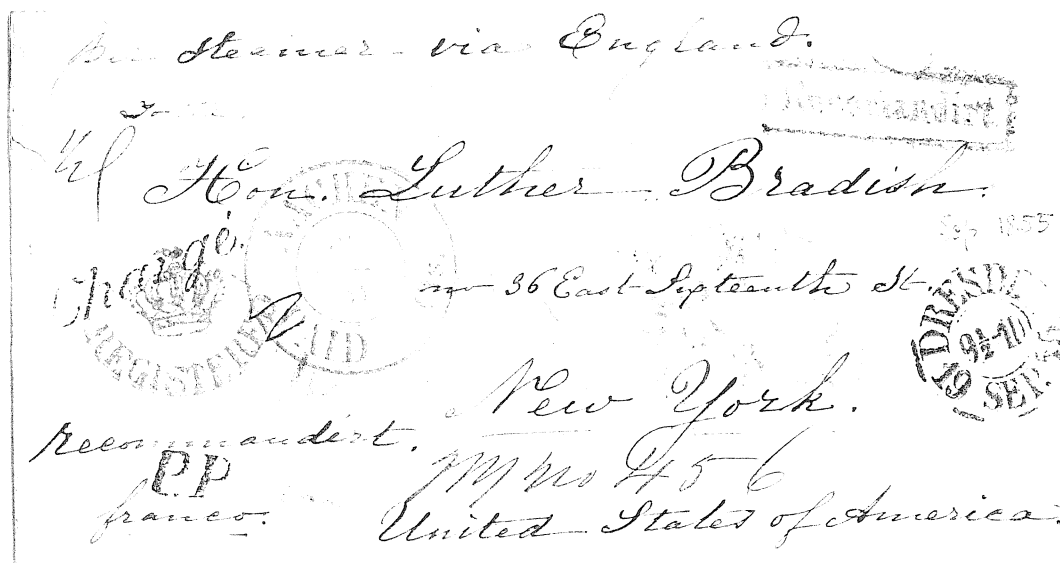 Per Steamer via England.
Recomandirt
Hon. Luther Bradish.
Sep 1855
Chargé.
no 36 East Sixteenth St.
REGISTERED
PAID
DRESDEN
9½-10
19 SEP.
New York.
recommandirt.
P.P
No 456
franco.
United States of America.